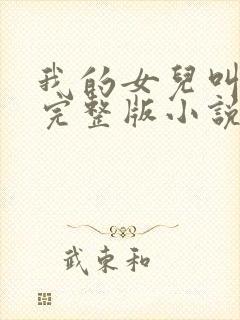 我的女兒叫
完整版小說
武東和